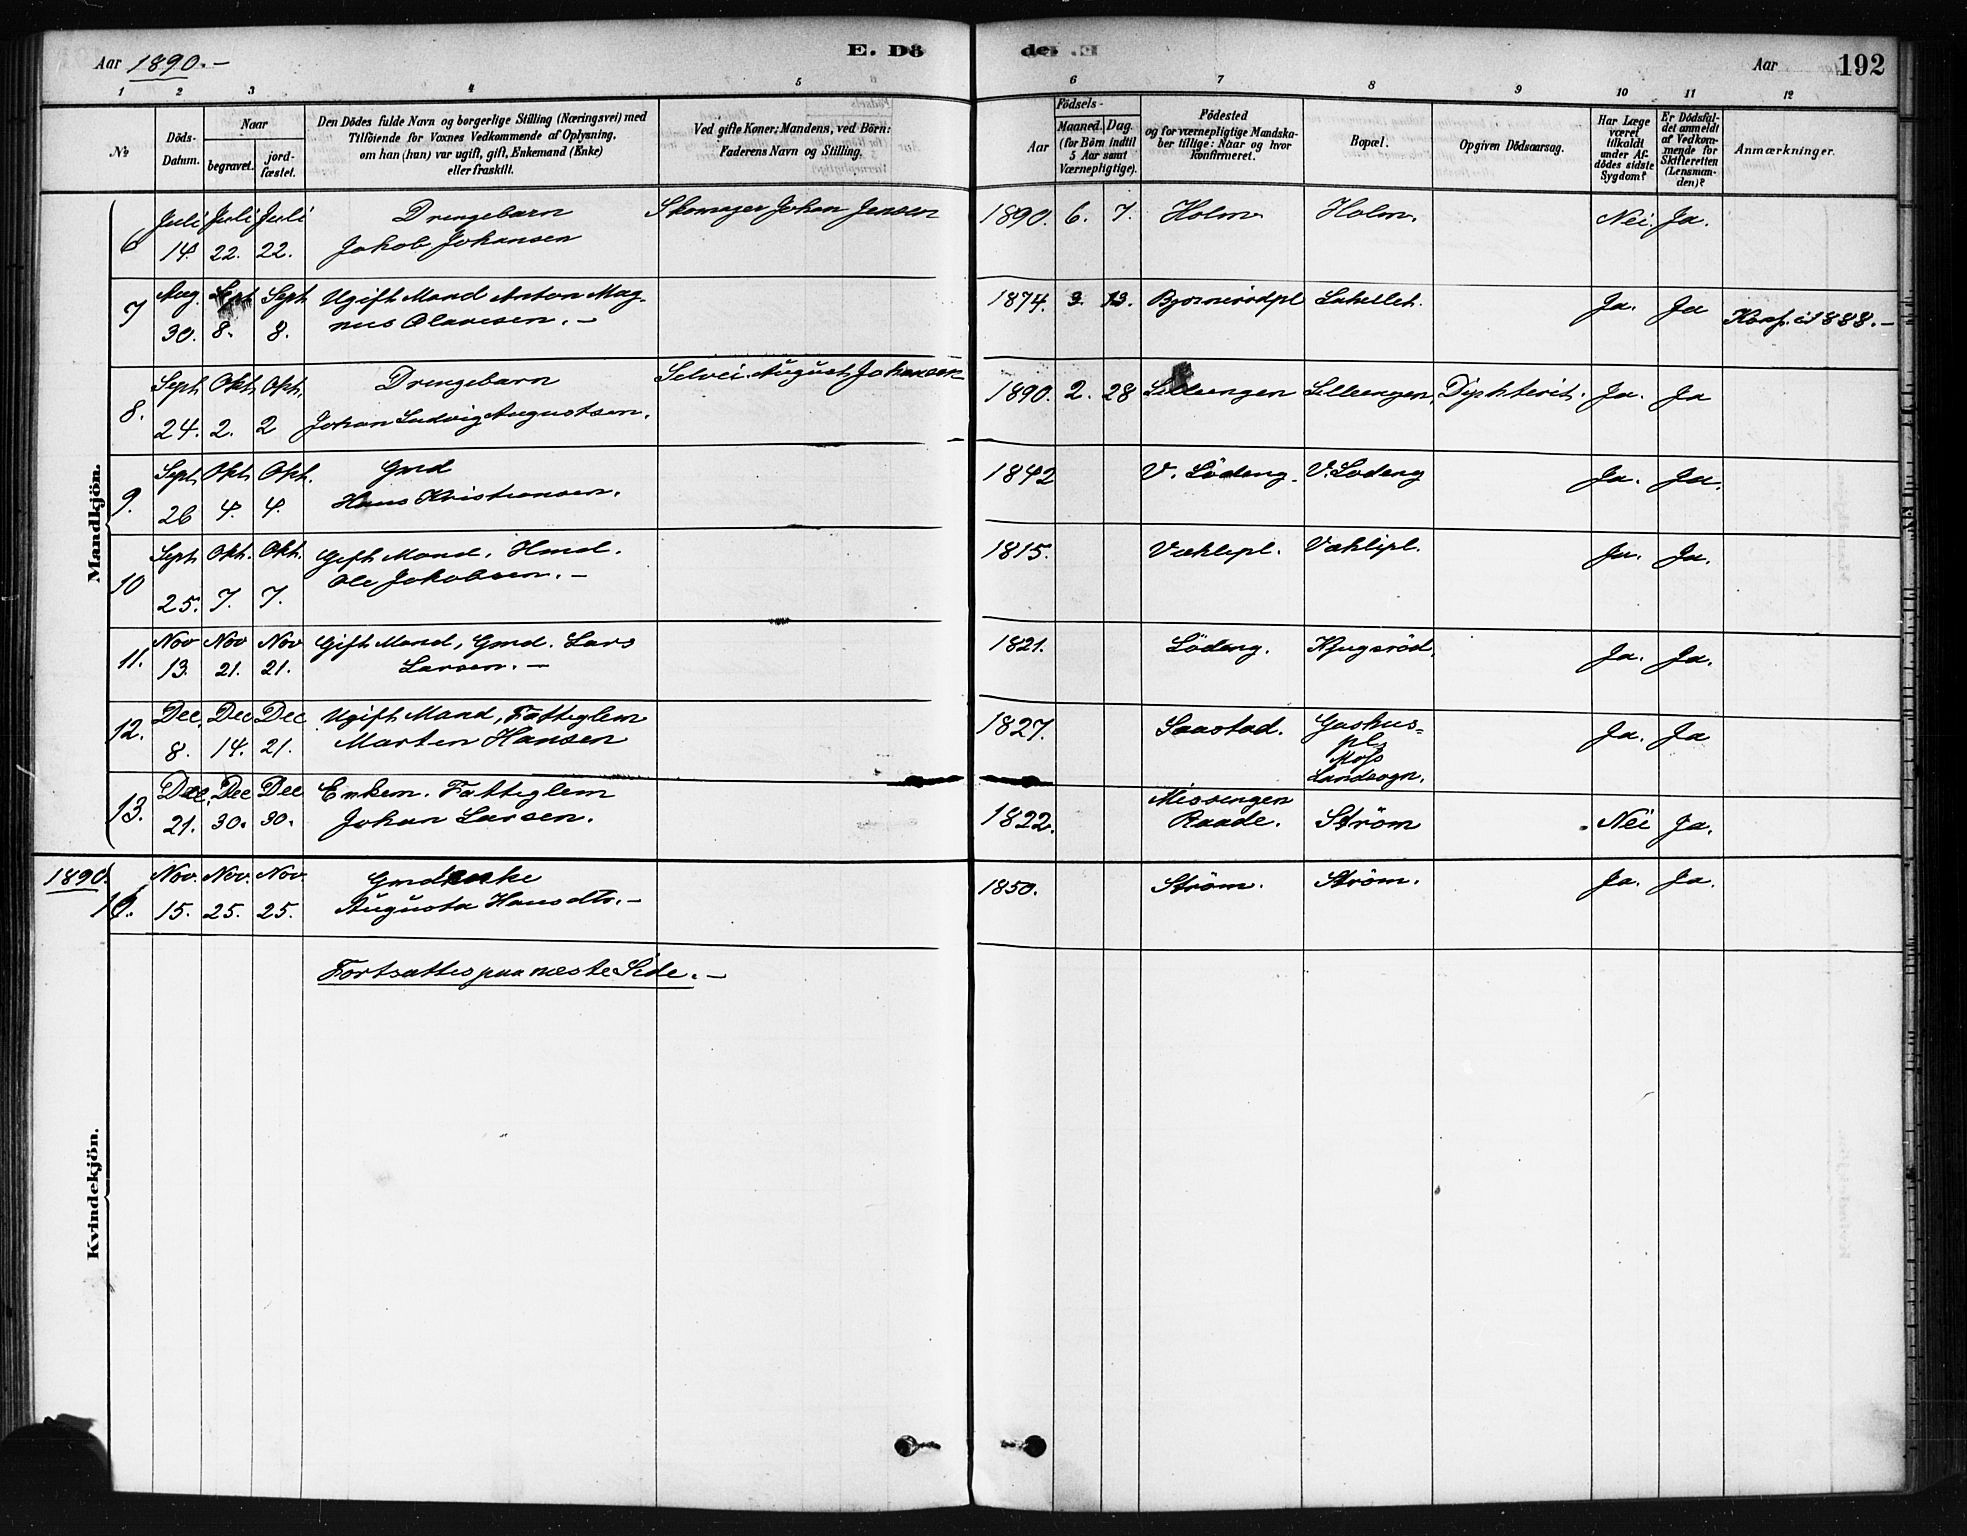 Aar 1890. -
E. Dö
de .E
Aar
192
1 2 3 4 5 6 7 8 9 10 11 12
№
Döds-Datum.
Naar
begravet.
jord-fæstet.
Den Dödes fulde Navn og borgerlige Stilling (Næringsvei) med
Tilföiende for Voxnes Vedkommende af Oplysning,
om han (hun) var ugift, gift, Enkemand (Enke)
eller fraskilt.
Ved gifte Koner: Mandens, ved Börn:
Faderens Navn og Stilling.
Födsels-
Aar
Maaned. Dag.
(for Börn indtil
5 Aar samt
Værnepligtige).
Födested
og for værnepligtige Mandska-
ber tillige: Naar og hvor
konfirmeret.
Bopæl.
Opgiven Dödsaarsag.
Har Læge
været
tilkaldt
under Af-
dödes sidste
Sygdom?
Er Dödsfal-
det anmeldt
af Vedkom-
mende for
Skifteretten
(Lensman-
den)?
Anmærkninger.
Mandkjön.
6 Juli 14. Juli 22. Juli 22. Drengebarn
Jakob Johansen
Skomager Johan Jensen 1890. 6. 7. Holm Holm. Nei. Ja.
7 Aug. 30. Sept 8. Sept 8. Ugift Mand Anton Mag-
nus Olavesen. -
1874. 3. 13. Bjornerödpl Ja. Ja Konf. i 1888. -
8. Sept 24. Okt 2. Okt. 2 Drengebarn
Johan Ludvig Augustsen.
Selvei. August Johansen 1890. 2. 28 Lilleengen Lilleengen. Diphterit. Ja. Ja
9. Sept 26 Okt 4. Okt. 4. Gmd
Hans Kristiansen.
1842 V. Lödeng. V. Lodeng Ja. Ja.
10 Sept 25. Okt. 7. Okt. 7. Gift Mand. Hmd.
Ole Jakobsen. -
1815. Væhlipl. Væhlipl. Ja. Ja.
11. Nov 13. Nov 21. Nov 21. Gift Mand, Gmd. Lars
Larsen. -
1821. Lödeng. Ja. Ja.
12. Dec. 8. Dec 14. Dec 21. Ugift Mand, Fattiglem
Marten Hansen
1827. Saastad. Gashus-
pl.
Moss
Landsogn. Ja. Ja
13. Dec. 21. Dec 30. Dec 30. Enkem. Fattiglem
Johan Larsen.
1822. Missingen
Raade. Ström Nei Ja.
Kvindekjön.
1890.
Nov. 15. Nov. 25. Nov. 25. Gmdenke
Augusta Hansdtr. -
1850. Ström. Ström. Ja. Ja.
Fortsættes paa næste Side. -